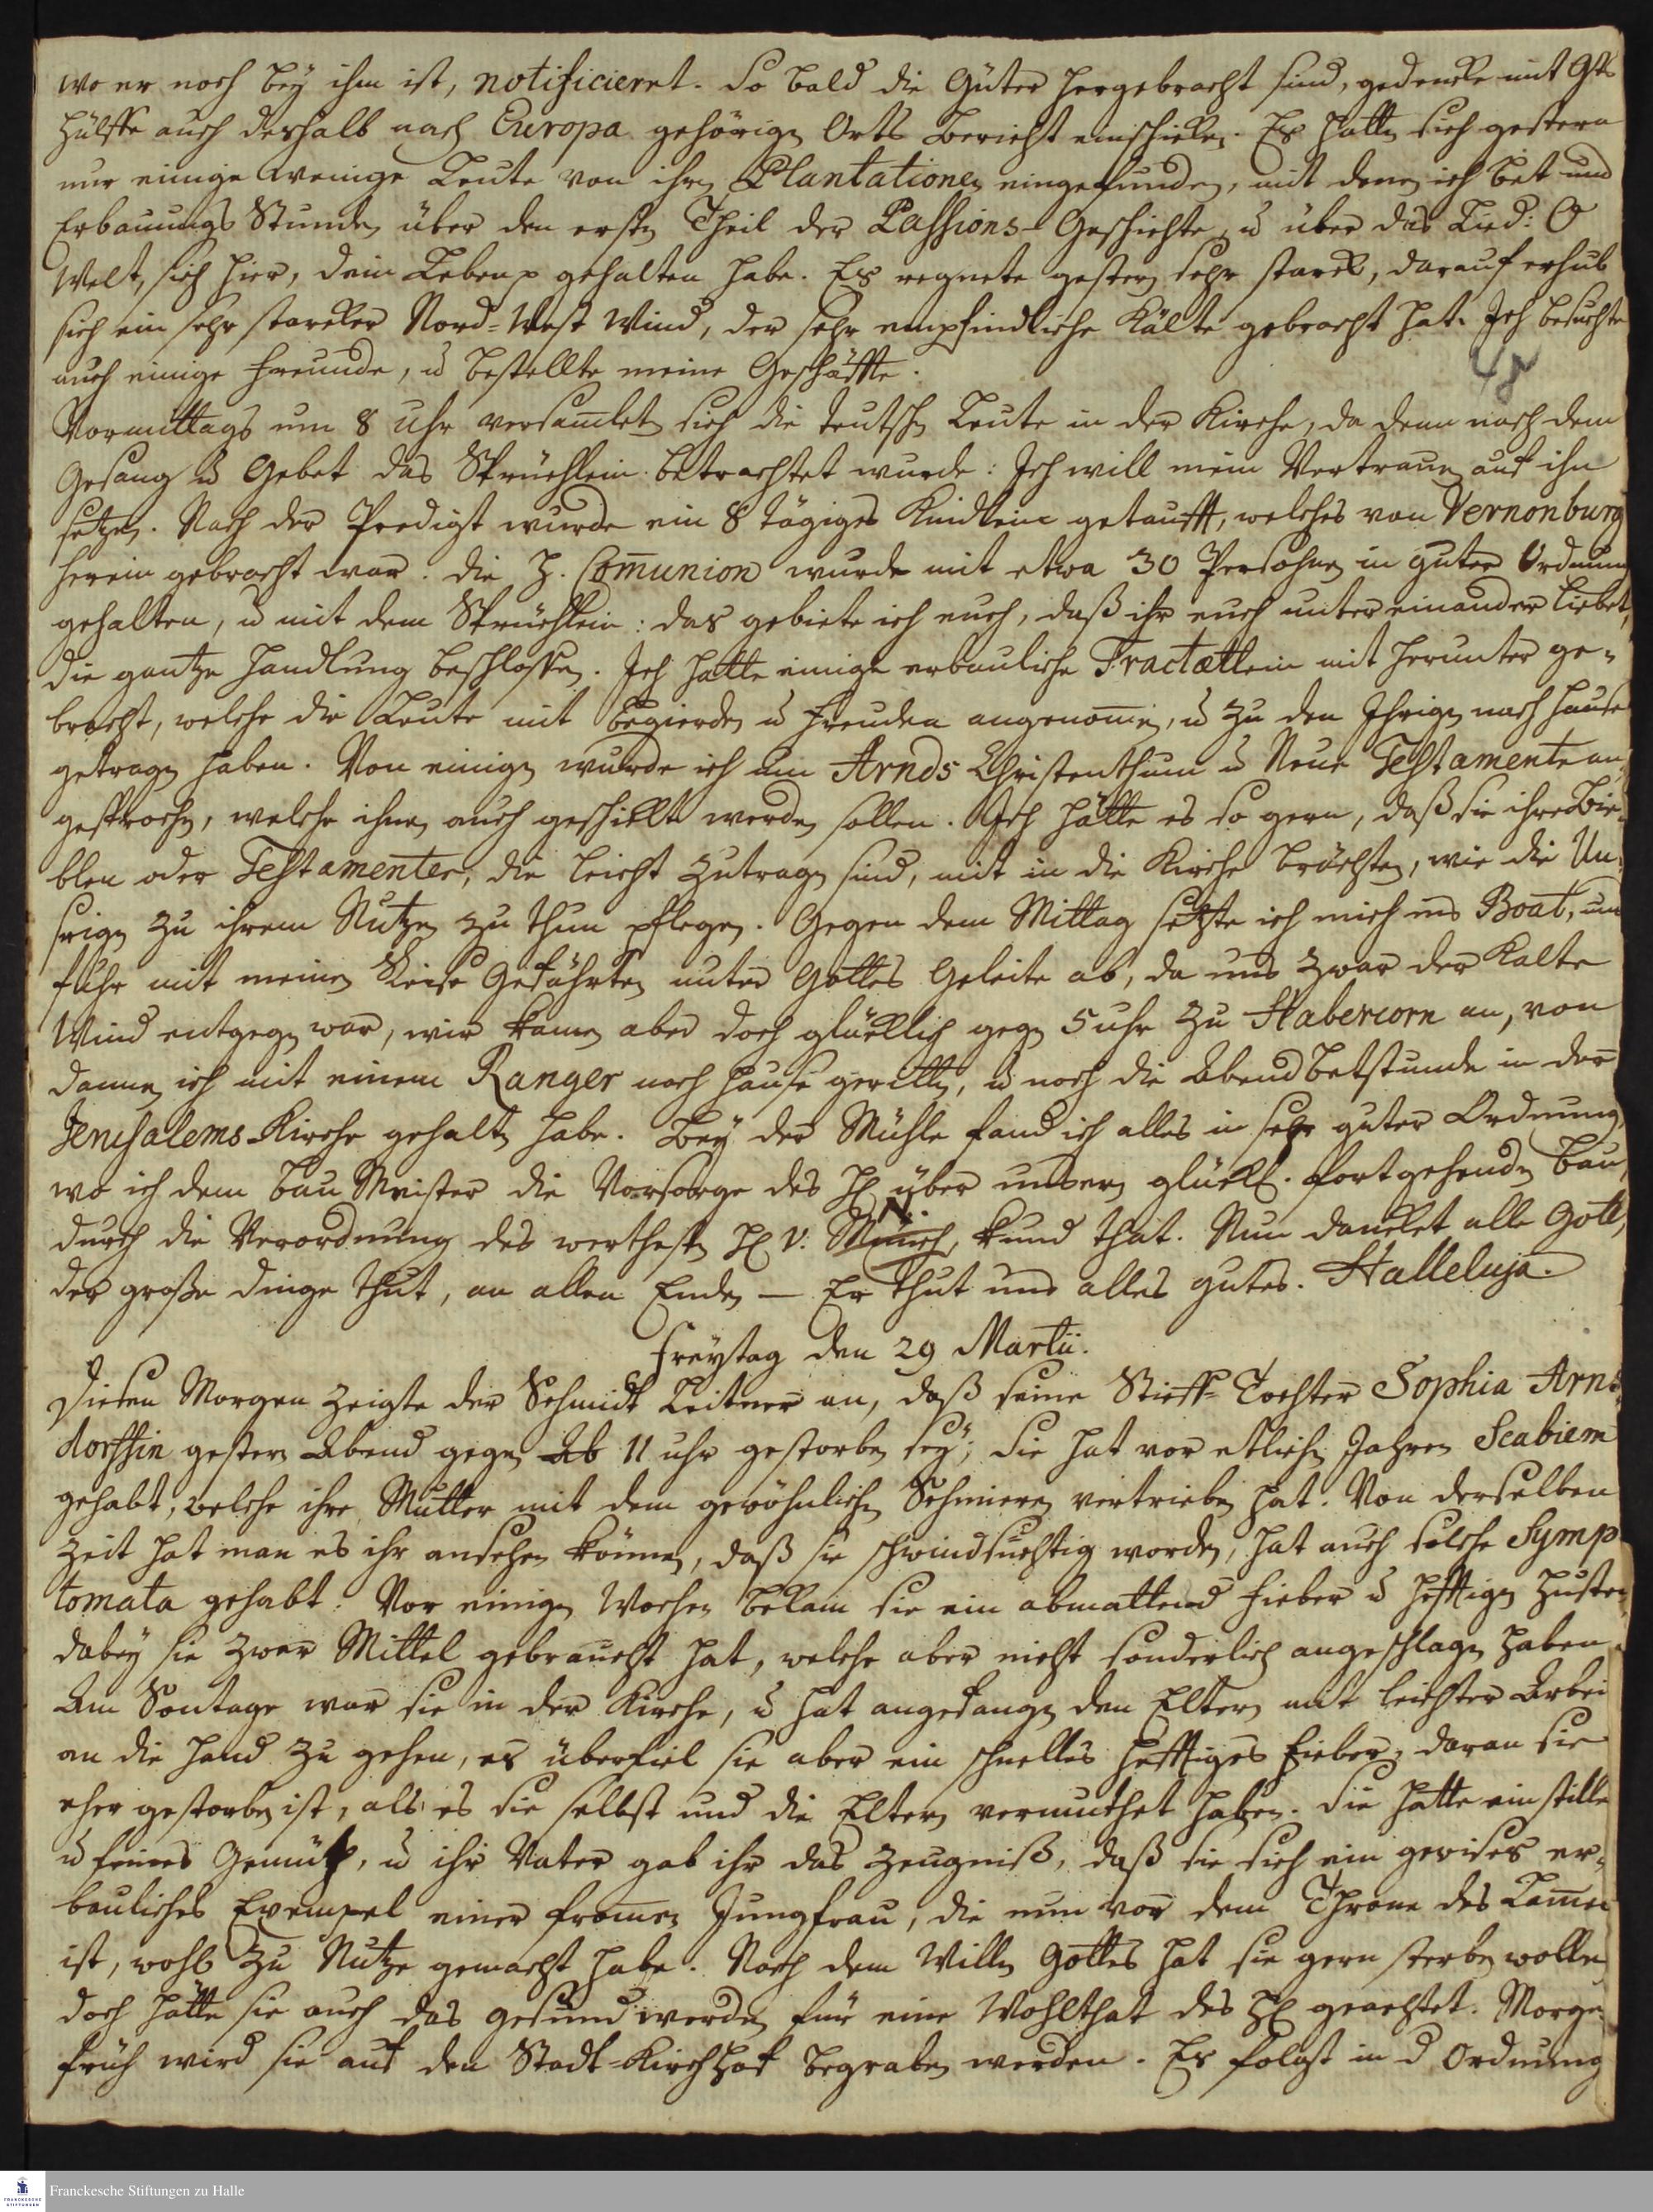 wo er noch bey ihm ist, notificieret. So bald die Güter hergebracht sind, gedencke mit Gotts
Hülffe auch deshalb nach Europa gehörign Orts Bericht einschicken. Es hattn sich gestern
nur einige wenige Leute von ihrn Plantationen eingefunden, mit denen ich Bet und
Erbauungs Stunden über den erstn Theil der Passions-Geschichte, u über das Lied: O
Welt, sieh hier, dein Leben p gehalten habe. Es regnete gestern sehr starck, darauf erhub
sich ein sehr starcker Nord-West Wind, der sehr empfindliche Kälte gebracht hat. Ich besuchte
auch einige Freunde, u bestellte meine Geschäffte.
Vormittags um 8 Uhr versamlet sich die teutschn Leute in der Kirche, da denn nach dem
Gesang u Gebet das Sprüchlein betrachtet wurde: Ich will mein Vertrauen auf ihn
setzen. Nach der Predigt wurde ein 8 tägiges Kindlein getaufft, welches von Vernonburg
herein gebracht war. Die H. Comunion wurde mit etwa 30 Persohnen in guter Ordnung
gehalten, u mit dem Sprüchlein: das gebiete ich euch, daß ihr euch unter einander liebet,
die gantze Handlung beschlossen. Ich hatte einige erbauliche Tractætlein mit herunter ge-
bracht, welche die Leute mit Begierden u Freuden angenomen, u zu den Ihrign nach Hause
getragen haben. Von einign wurde ich um Arnds Christenthum u Neue Testamente an-
gesprochen, welche ihnen auch geschickt werden sollen. Ich hätte es so gern, daß sie ihre Bie-
blen oder Testamenter, die leicht zutragen sind, mit in die Kirche brächten, wie die Un-
srign zu ihrem Nutzen zu thun pflegen. Gegen dem Mittag setzte ich mich ins Boat, und
fuhr mit meinen Reise Gefährten unter Gottes Geleite ab, da uns zwar der Kalte
Wind entgegn war, wir kamen aber doch glücklich gegn 5 uhr zu Habercorn an, von
dannen ich mit einem Ranger nach Hause gerittn, u noch die Abend betstunde in der
Jerusalems-Kirche gehaltn habe. Bey der Mühle fand ich alles in sehr guter Ordnung,
wo ich dem Bau Meister die Vorsorge des H über unsern glückl. fortgehenden Bau,
durch die Verordnung des werthestn H v. Münch, kund that. Nun dancket alle Gott,
der große Dinge thut, an allen Enden — Er thut uns alles gutes. Halleluja.
Freytag den 29 Martii.
Diesen Morgen zeigte der Schmidt Leitner an, daß seine Stieff-Tochter Sophia Arns-
dorffin gestern Abend gegen Ab 11 uhr gestorben sey; Sie hat vor etlichn Jahren Scabiem
gehabt, welche ihre Mutter mit dem gewöhnlichn Schmieren vertrieben hat. Von derselben
Zeit hat man es ihr ansehen können, daß sie schwindsüchtig worden, hat auch solche Symp
tomata gehabt. Vor einign Wochen bekam sie ein abmattend Fieber u hefftign Husten
dabey sie zwar Mittel gebraucht hat, welche aber nicht sonderlich angeschlagen haben.
Am Sontage war sie in der Kirche, u hat angefangn den Eltern mit leichter Arbei
an die Hand zu gehen, es überfiel sie aber ein schnelles hefftiges Fieber, daran sie
eher gestorben ist, als es sie selbst und die Eltern vermuthet haben. Sie hatte ein stille
u feines Gemüth, u ihr Vater gab ihr das Zeugniß, daß sie sich ein gewises er-
bauliches Exempel einer fromen Jungfrau, die nun vor dem Throne des Lames
ist, wohl zu Nutze gemacht habe. Nach dem Willen Gottes hat sie gern sterben wollen
doch hätte sie auch das gesund werden für eine Wohlthat des H geachtet. Morgn
früh wird sie auf den Stadt-Kirchhof begraben werden. Es folgt in d Ordnung
Franckesche Stiftungen zu Halle